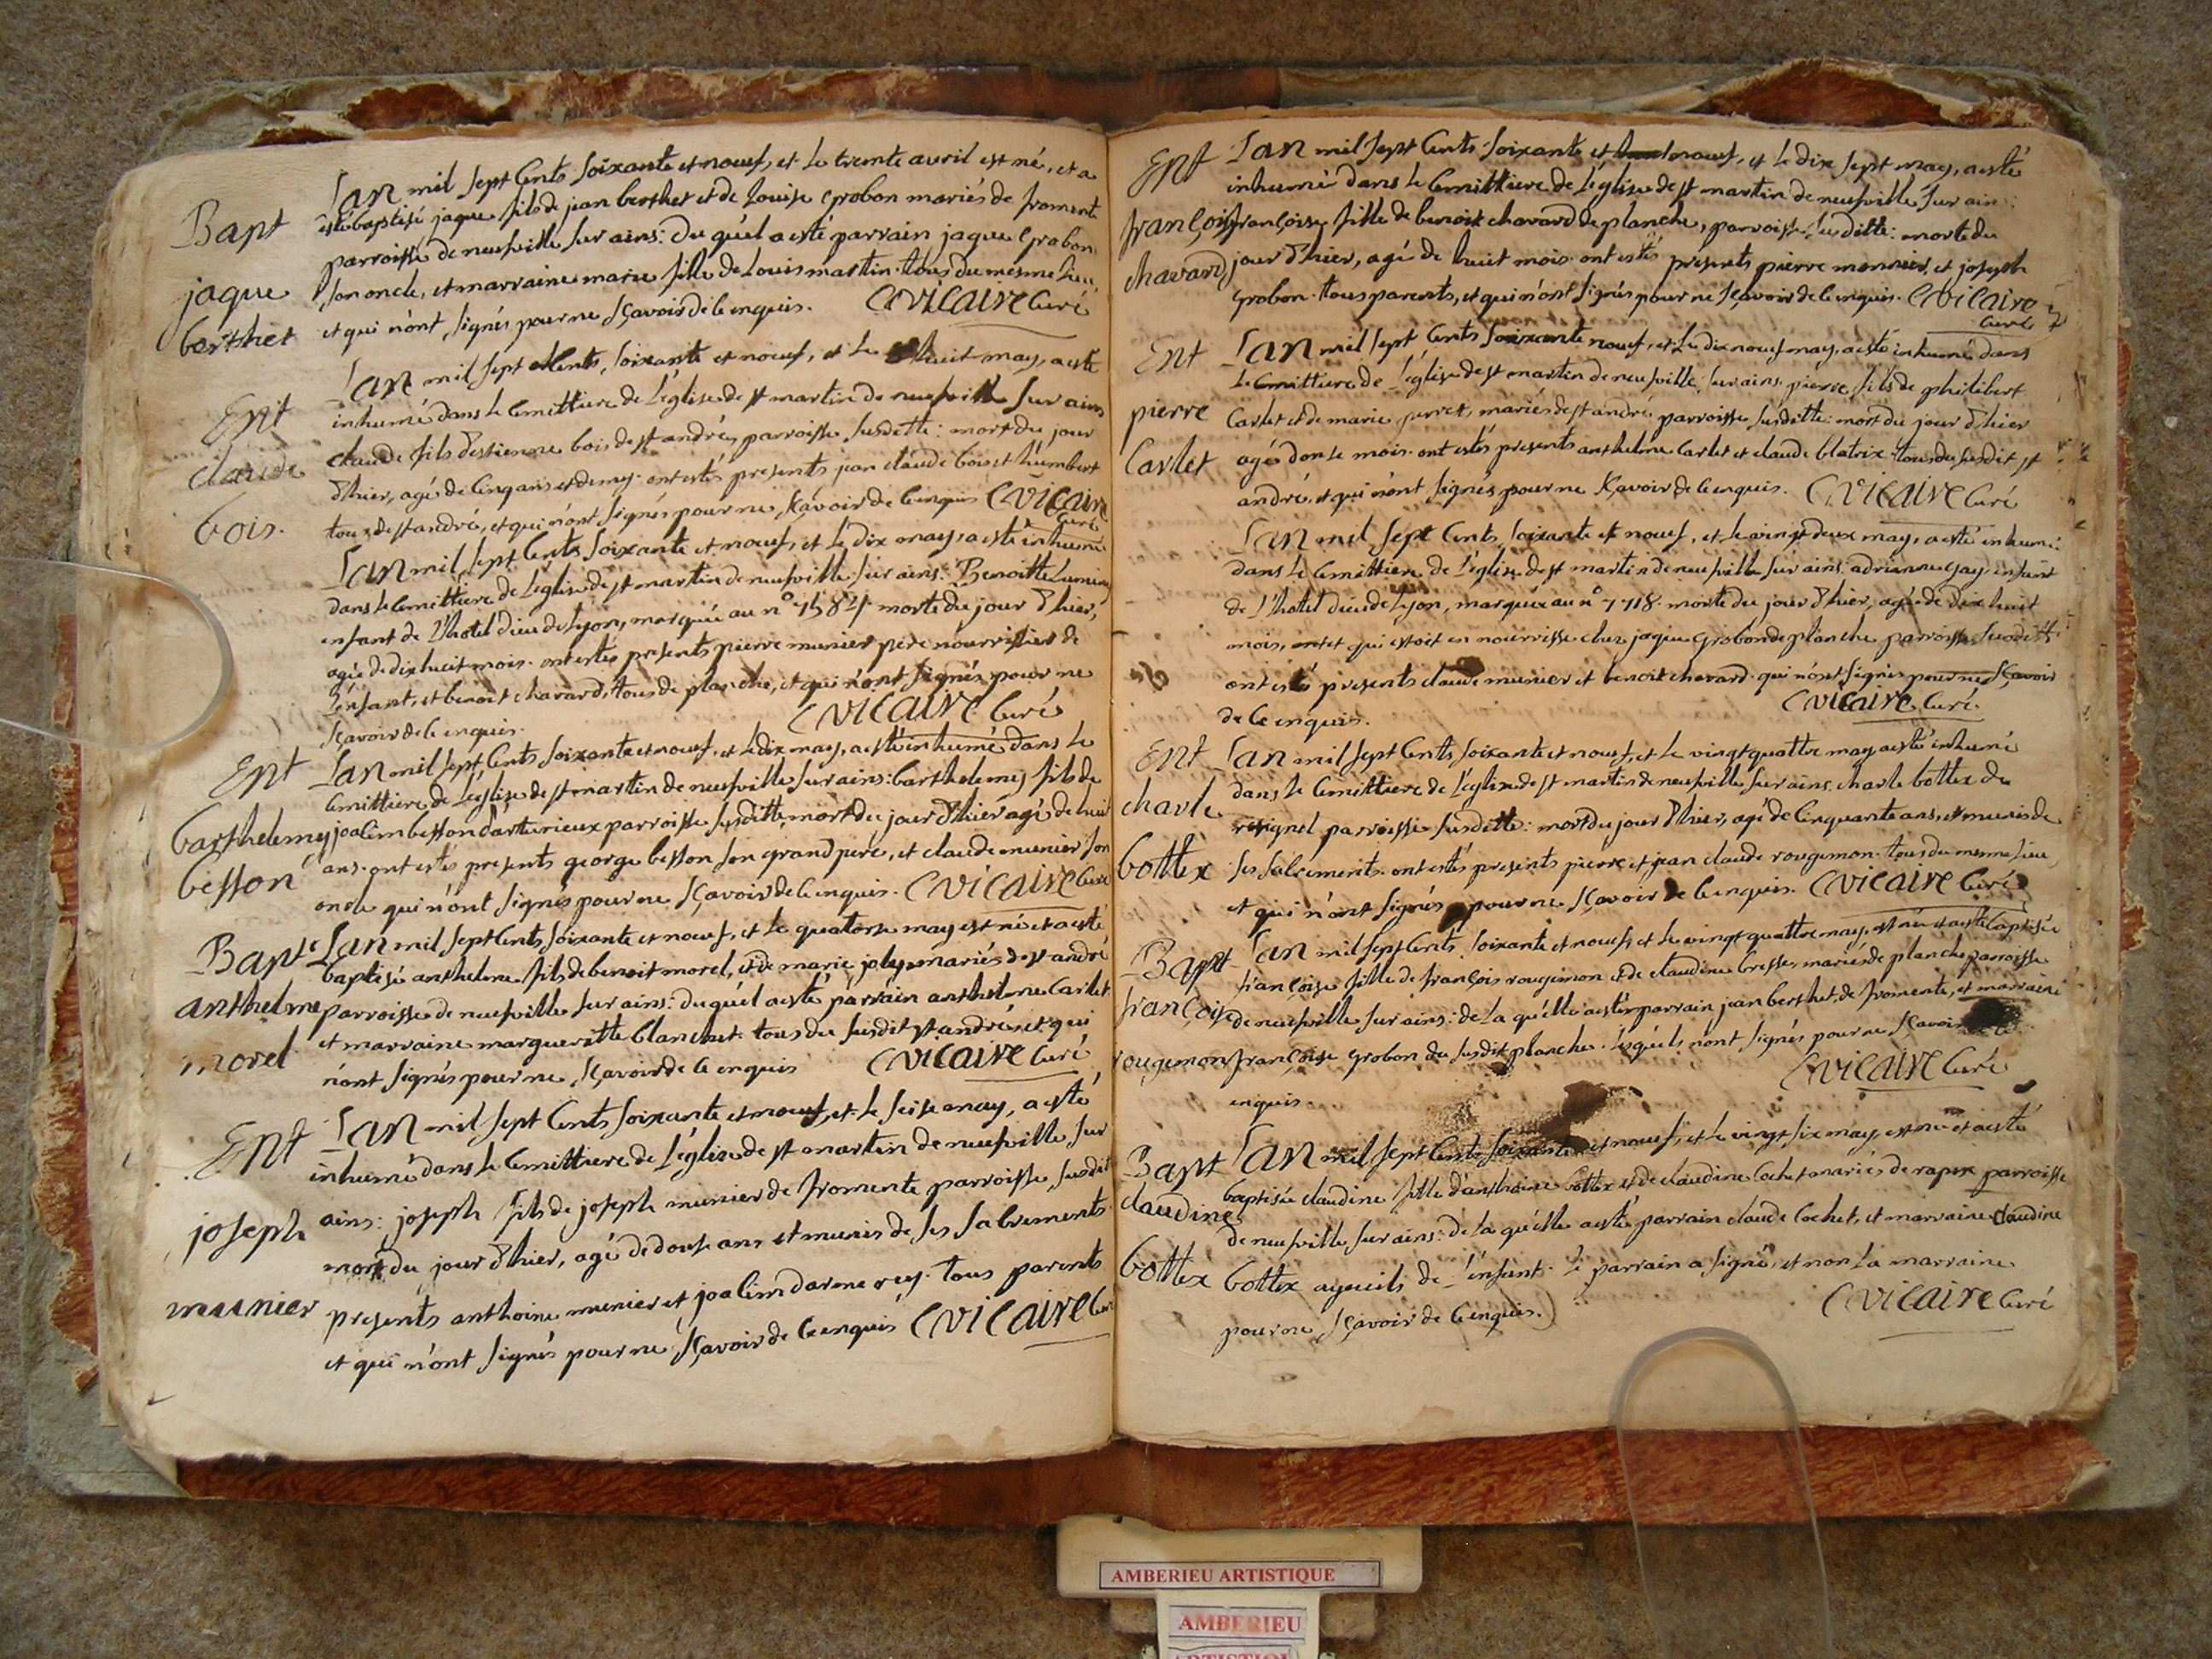 Bapt
jaque
berthet
Lan mil sept cents soixante et noeuf, et le trente avril est né, et a
esté baptisé jaque fils de jean berthet et de Louise grobon mariés de fromente
parroisse de neufville sur ains: du quél a esté parrain jaque grobon
son oncle, et marraine marie fille de Louis martin. tous du mesme lieu,
et qui n'ont signés pour ne sçavoir de ce enquis. CVicaire Curé
Ent
claude
bois.
Lan mil sept cents soixante et noeuf, et le huit may, a esté
inhumé dans le cemittiere de L'église de st martin de neufville sur ains
claude fils d'estienne bois de st andré, parroisse susditte: mort du jour
d'hier, agé de cinq ans et demy. ont estés presents jean claude bois et humbert
tous de st andré, et qui n'ont signés pour ne sçavoir de ce enquis CVicaire
Curé
Lan mil sept cents soixante et noeuf, et le dix may, a esté inhumé
dans le cemittiere de L'église de st martin de neufville sur ains: Benoitte
enfant de L'hotel dieu de Lyon, marquée au n° morte du jour d'hier,
agée de dix huit mois. ont estés presents pierre munier pere nourrissier de
L'enfant, et benoit chavard, tous de planche, et qui n'ont signés pour ne
sçavoir de ce enquis. CVicaire Curé
Ent
barthelemy
besson
Lan mil sept cents soixante et noeuf, et le dix may, a esté inhumé dans le
cemittiere de L'église de st martin de neufville sur ains: barthelemy fils de
joacim besson d'arturieux parroisse susditte, mort du jour d'hier agé de huit
ans. ont estés presents george besson son grand pere, et claude munier son
oncle qui n'ont signés pour ne sçavoir de ce enquis. CVicaire Curé
Bapte
anthelme
morel
Lan mil sept cents soixante et noeuf, et le quatorse may est né et a esté
baptisé anthelme fils de benoit morel, et de marie joly mariés de st andré
parroisse de neufville sur ains: du quél a esté parrain anthelme Carlet
et marraine margueritte blanchet. tous du susdit st andré, et qui
n'ont signés pour ne sçavoir de ce enquis CVicaire Curé
Ent
joseph
munier
Lan mil sept cents soixante et noeuf, et le seise may, a esté
inhumé dans le cemittiere de L'église de st martin de neufville sur
ains: joseph fils de joseph munier de fromente parroisse susdit
mort du jour d'hier, agé de douse ans et munis de ses sacrements
presents anthoine munier et joacim darmerey. tous parents
et qui n'ont signés pour ne sçavoir de ce enquis CVicaire Curé
Ent
françoise
chavard
Lan mil sept cents soixante et noeuf, et le dix sept may, a esté
inhumé dans le cemittiere de L'église de st martin de neufville sur ain:
françoise fille de benoit chavard de planche, parroisse susditte: morte du
jour d'hier, agé de huit mois. ont estés presents pierre monnier, et joseph
grobon. tous parents, et qui n'ont signés pour ne sçavoir de ce enquis. CVicaire
Curé
Ent
pierre
Carlet
Lan mil sept cents soixante noeuf, et le dix noeuf may, a esté inhumé dans
le cemittiere de L'église de st martin de neufville sur ains. pierre fils de philibert
Carlet et de marie perret, mariés de st andré parroisse susditte: mort du jour d'hier
agé d'onse mois. ont estés presents anthelme Carlet et claude blatrix. tous du susdit st
andré. et qui n'ont signés pour ne sçavoir de ce enquis. CVicaire Curé
Lan mil sept cents soixante et noeuf, et le vingt deux may, a esté inhumé
dans le cemittiere de L'église de st martin de neufville sur ains. adrienne gay enfant
de L'hotel dieu de Lyon, marquée au n° 7718. morte du jour d'hier, agée de dix huit
mois, et qui estoit en nourrisse chez jaque grobon de planche parroisse susditte
ont estés presents claude munier et benoit chavard. qui n'ont signés pour ne sçavoir
de ce enquis. CVicaire Curé.
Ent
charle
bottex
Lan mil sept cents soixante et noeuf, et le vingt quattre may a esté inhumé
dans le cemittiere de L'église de st martin de neufville sur ains. charle bottex de
resignel parroisse susditte: mort du jour d'hier, agé de cinquante ans, et munis de
ses sacrements. ont estés presents pierre et jean claude rougemon. tous du mesme lieu,
et qui n'ont signés pour ne sçavoir de ce enquis. CVicaire Curé
Bapt
françoise
rougemon
Lan mil sept cents soixante et noeuf, et le vingt quattre may, est née et a esté baptisée
françoise fille de françois rougemon et de claudine bresse, mariés de planche parroisse
de neufville sur ains: de la quélle a estés parrain jean berthet de fromente, et marraine
françoise grobon du susdit planche. Lesquels n'ont signés pour ne sçavoir de ce
enquis. CVicaire Curé
Bapt
claudine
bottex
Lan mil sept cents soixante et noeuf, et le vingt six may, est née et a esté
baptisée claudine fille d'anthoine bottex et de claudine Cochet mariés de rapex parroisse
de neufville sur ains: de la quélle a esté parrain claude Cochet, et marraine claudine
bottex ayeuils de L'enfant. Le parrain a signé, et non La marraine
pour ne sçavoir de ce enquis.) CVicaire Curé
AMBERIEU ARTISTIQUE
AMBERIEU
ARTISTIQUE